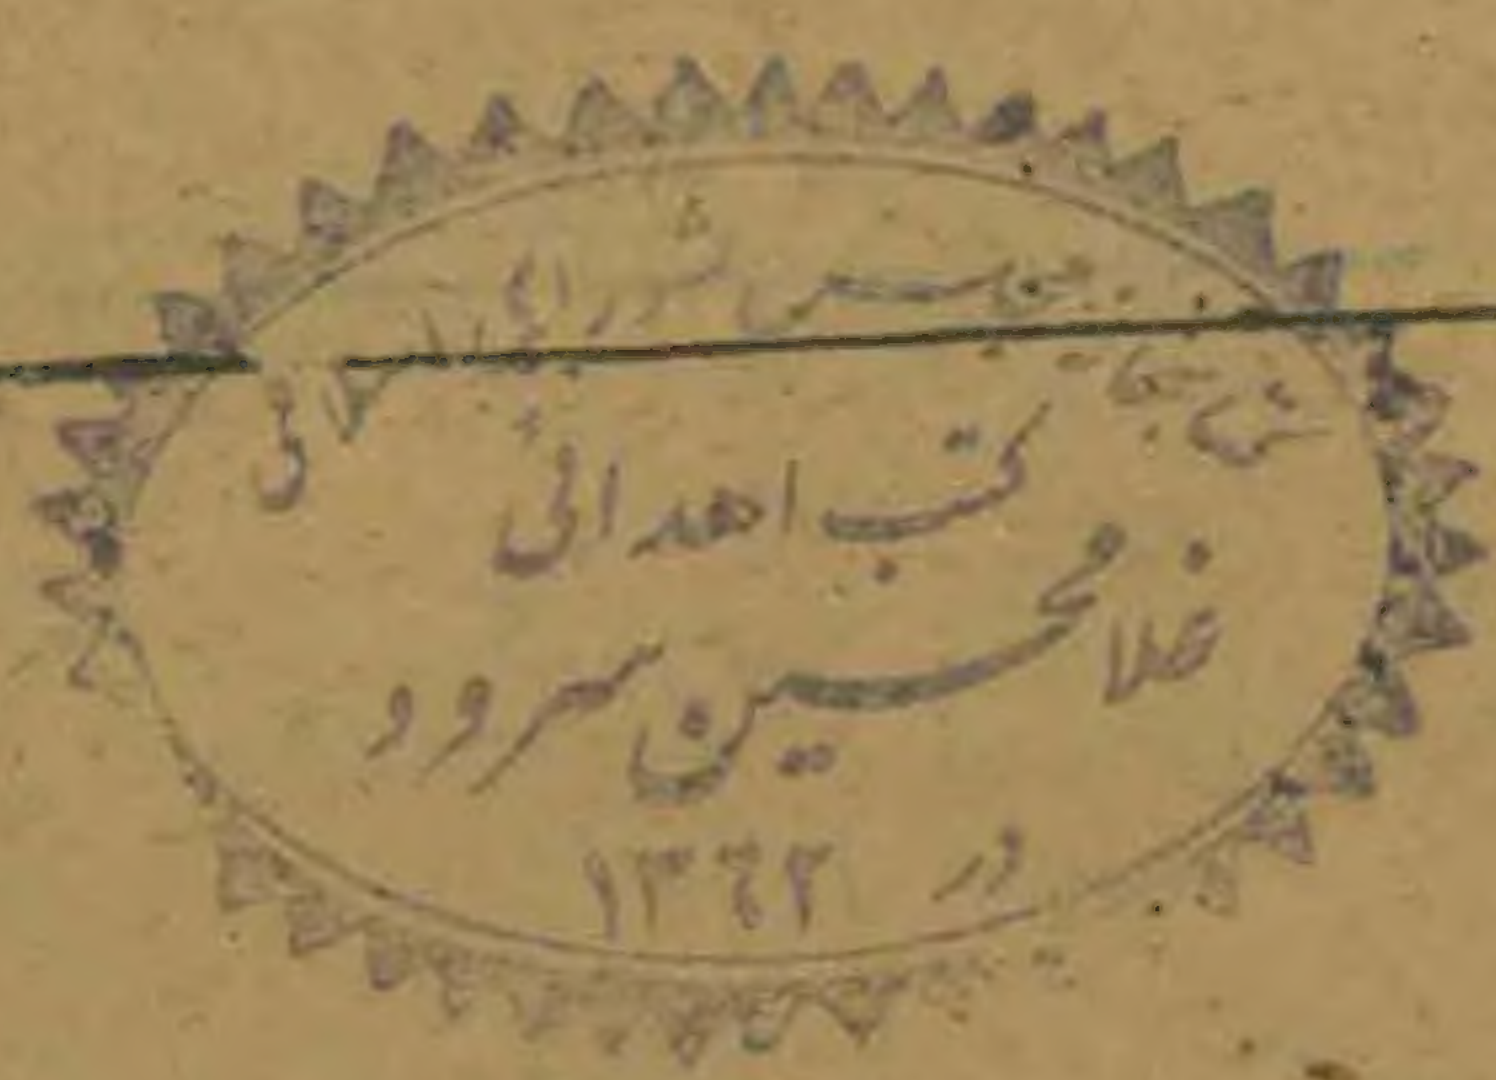 کتابخانه مجلس شورای اسلامی
کتب اهدائی
غلامحسین سرود
در ۱۳٤۲